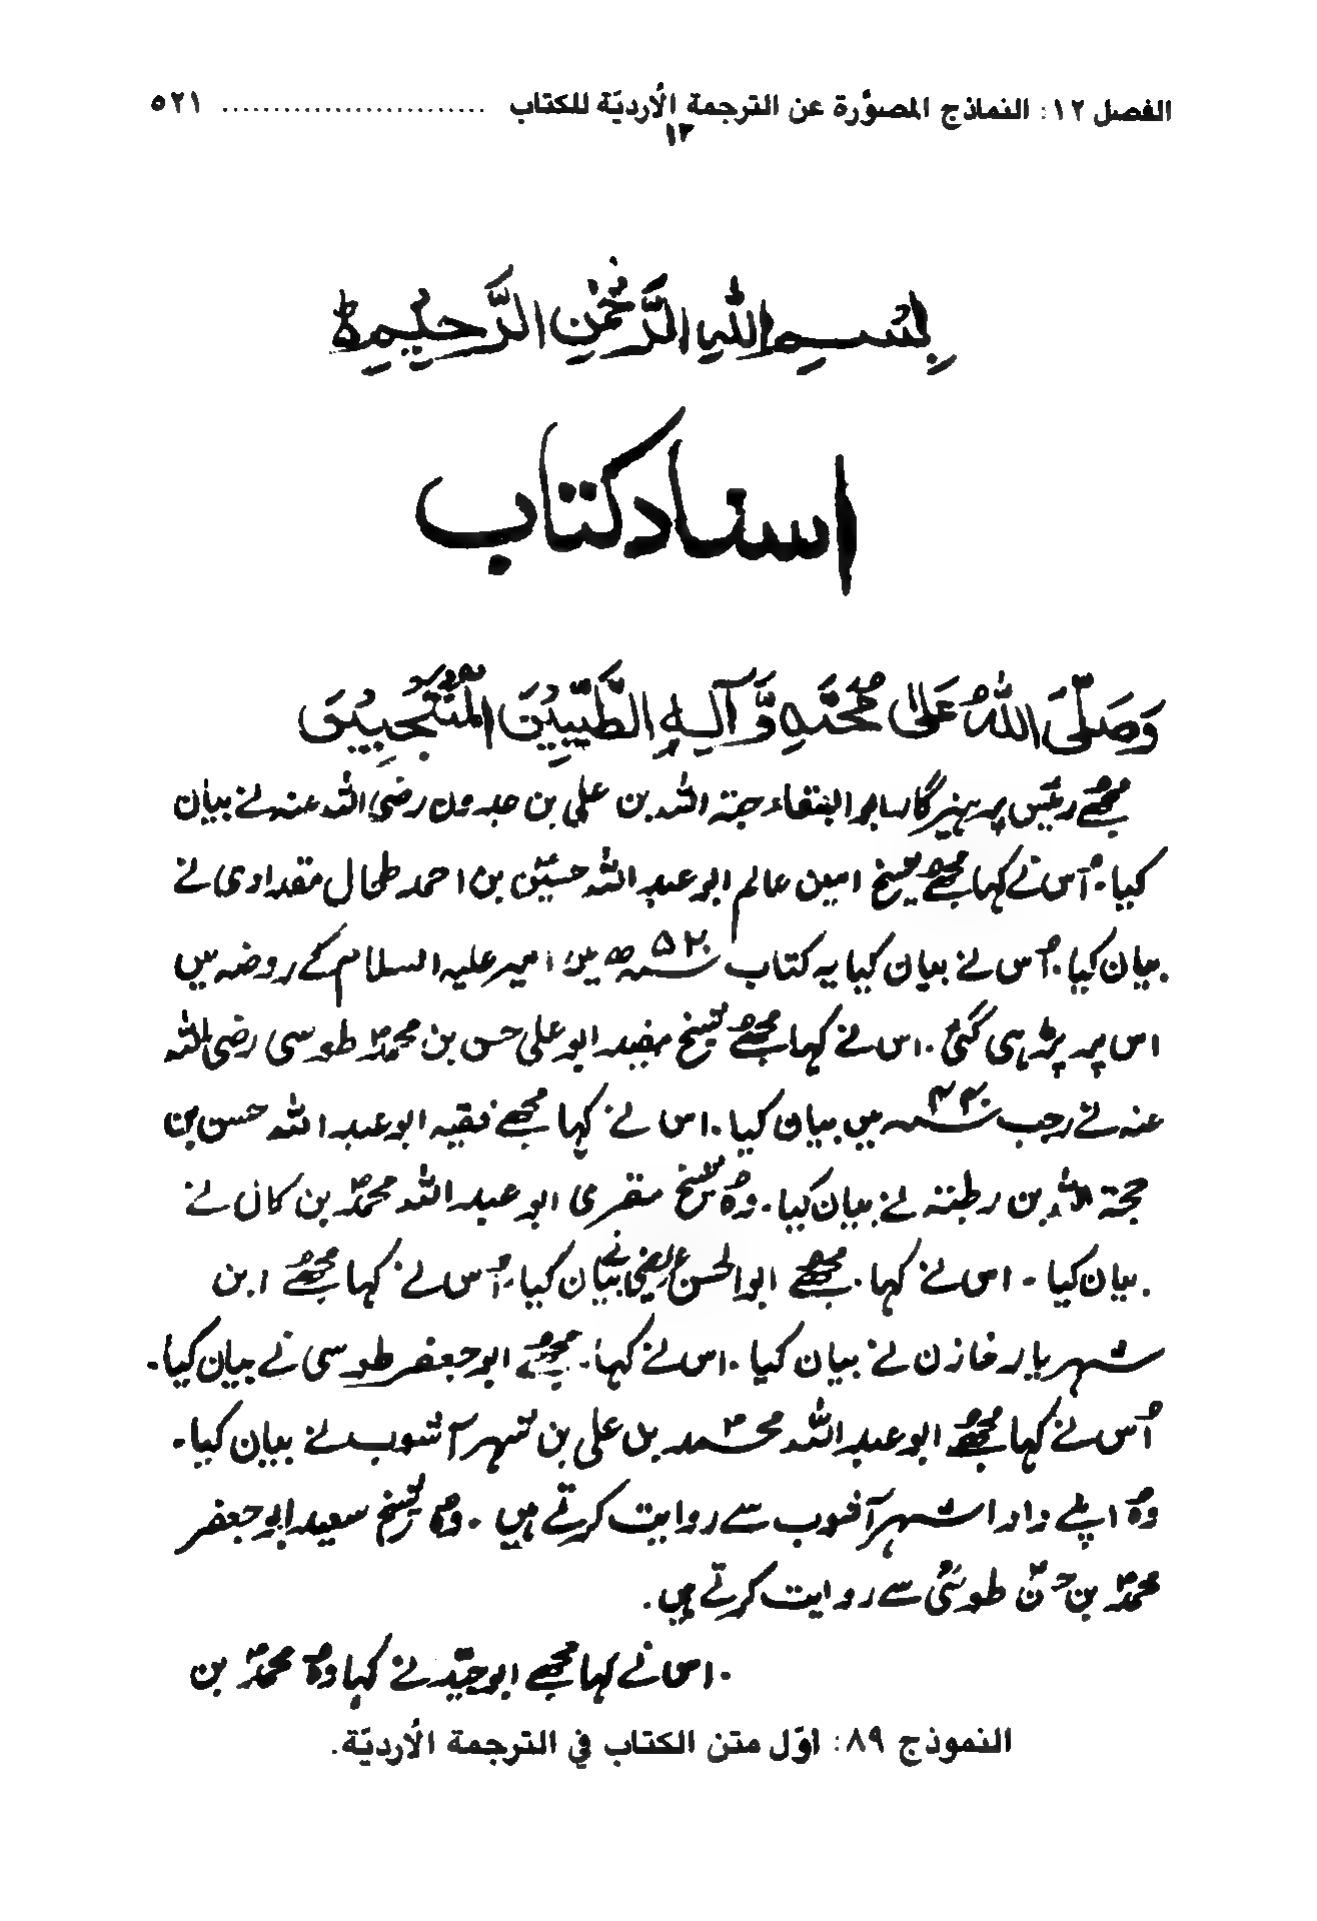 الفصل ١٢: النماذج المصوَّرة عن الترجمة الأُرديّة للكتاب ......................... ٥٢١
١٣
بِسْمِ اللهِ الرَّحْمٰنِ الرَّحِيْمِ
اسناد کتاب
وَصَلَّى اللهُ عَلٰى مُحَمَّدٍ وَّآلِهِ الطَّيِّبِيْنَ الْمُنْتَجَبِيْنَ
مجھے رئیس پرہیزگار ابوالبقاء حبتہ اللہ بن علی بن حمدون رضی اللہ عنہ نے بیان
کیا۔ اُس نے کہا مجھے شیخ امین عالم ابو عبد اللہ حسین بن احمد طحال مقدادی نے
بیان کیا۔ اُس نے بیان کیا یہ کتاب ۵۲۰ھ میں امیر علیہ السلام کے روضہ میں
اس پر پڑہی گئی۔ اس نے کہا مجھے شیخ مفید ابو علی حسن بن محمدؐ طوسی رضی اللہ
عنہ نے رجب ۴۴۰ میں بیان کیا۔ اس نے کہا مجھے فقیہ ابو عبد اللہ حسن بن
حجتہ اللہ بن رطبتہ نے بیان کیا۔ وہ شیخ مقری ابو عبد اللہ محمدؐ بن کال نے
بیان کیا۔ اس نے کہا۔ مجھے ابوالحسن عریضی نے بیان کیا۔ اُس نے کہا مجھے ابن
شہریار خازن نے بیان کیا۔ اس نے کہا۔ مجھے ابو جعفر طوسی نے بیان کیا۔
اُس نے کہا مجھے ابو عبد اللہ محمد بن علی بن شہر آشوب نے بیان کیا۔
وہ اپنے دادا شہر آشوب سے روایت کرتے ہیں۔ وہ شیخ سعید ابو جعفر
محمدؐ بن حسن طوسیؒ سے روایت کرتے ہیں۔
اس نے کہا مجھے ابو جیّد نے کہا وہ محمدؐ بن
النموذج ٨٩: أوّل متن الكتاب في الترجمة الأُرديّة.